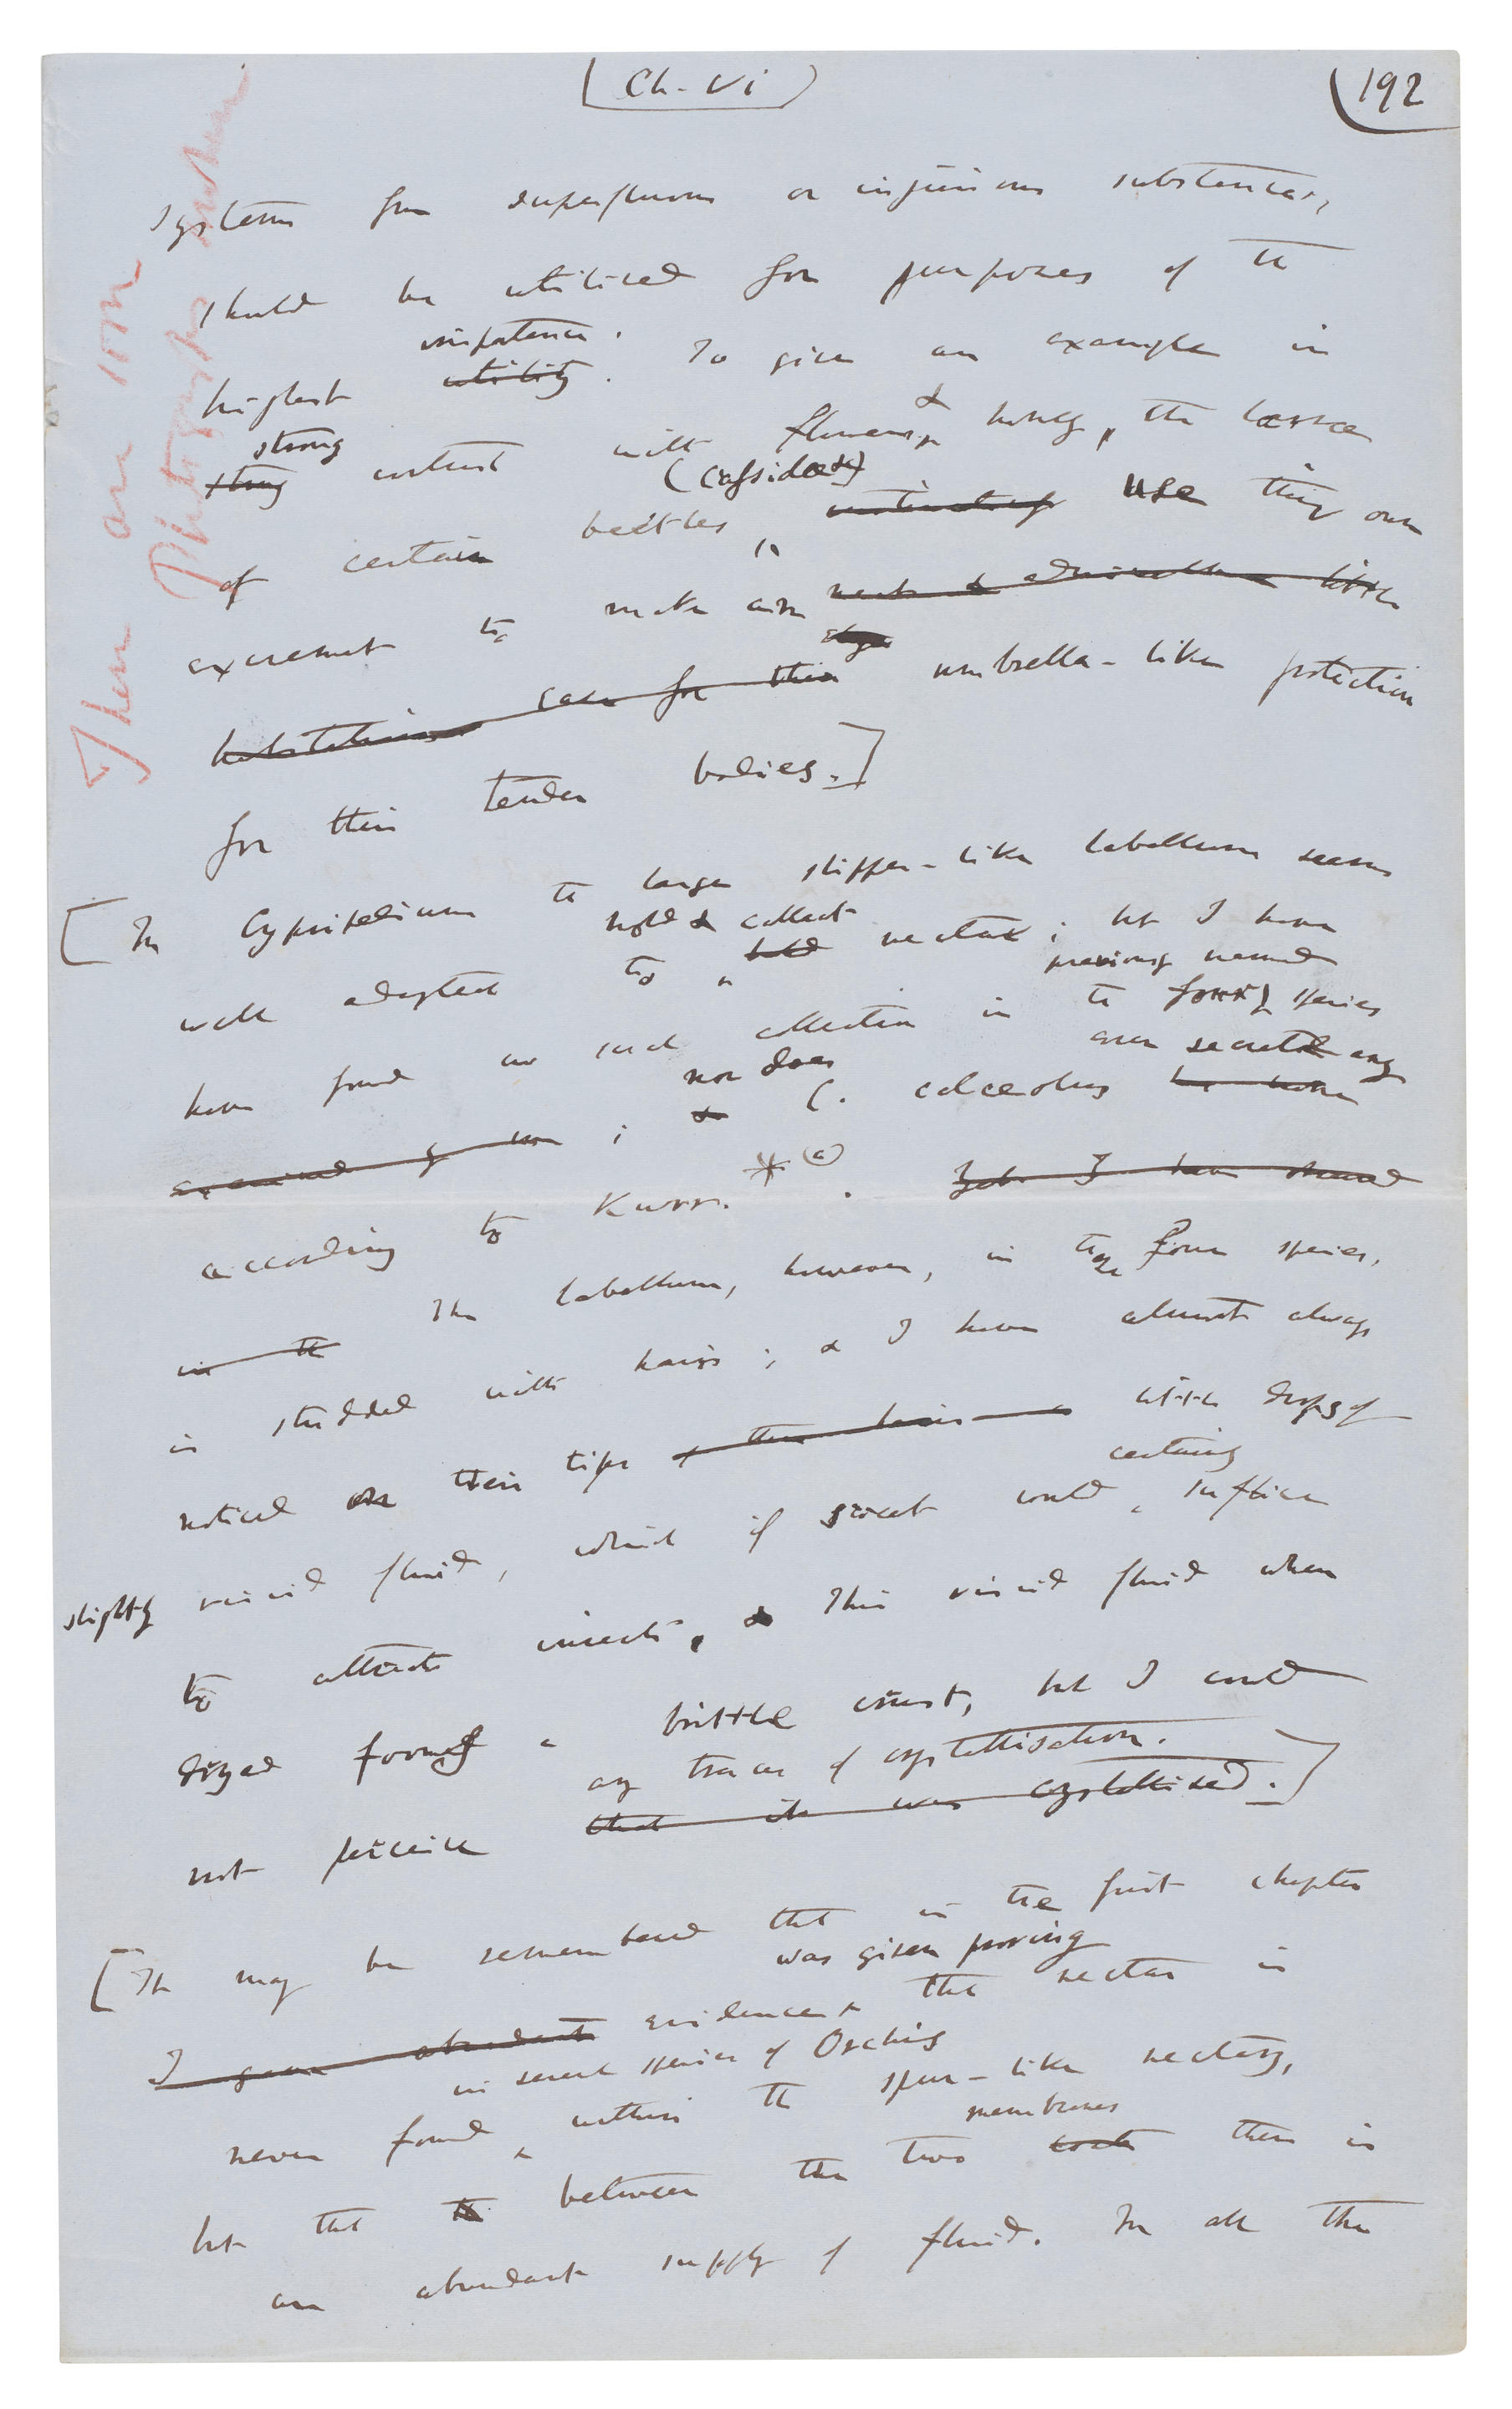 (Ch. VI)
(192
system from superfluous or injurious substances,
should be utilised for purposes of the
importance.
highest utility. To give an example in
strong
strong contrast with flowers & honey, the larvæ
(Cassidæ)
of certain beetles, use their own
excrement to make an neat & admirable little
case for their umbrella-like protection
for their tender bodies.]
[In Cypripedium the large slipper-like labellum seems
hold & collect
well adapted to hold nectar; but I have
previously named
have found no such collection in the four species
nor does even secrete any
; & C. calceolus
examined by me
according to Kurr.* (a). Yet I have
in the The labellum, however, in these four species,
is studded with hairs; & I have almost always
noticed on their tips little drops of
certainly
slightly viscid fluid, which if sweet would suffice
to attract insects, & This viscid fluid when
dryed forms a brittle crust, but I could
any traces of crystallisation.
not perceive that it was crystallised.]
[It may be remembered that in the first chapter
was given proving
I gave abundant evidence that nectar is
in several species of Orchis
never found within the spur-like nectary,
membranes
but that between the two coats there is
an abundant supply of fluid. In all the
There are 1000
Photographs